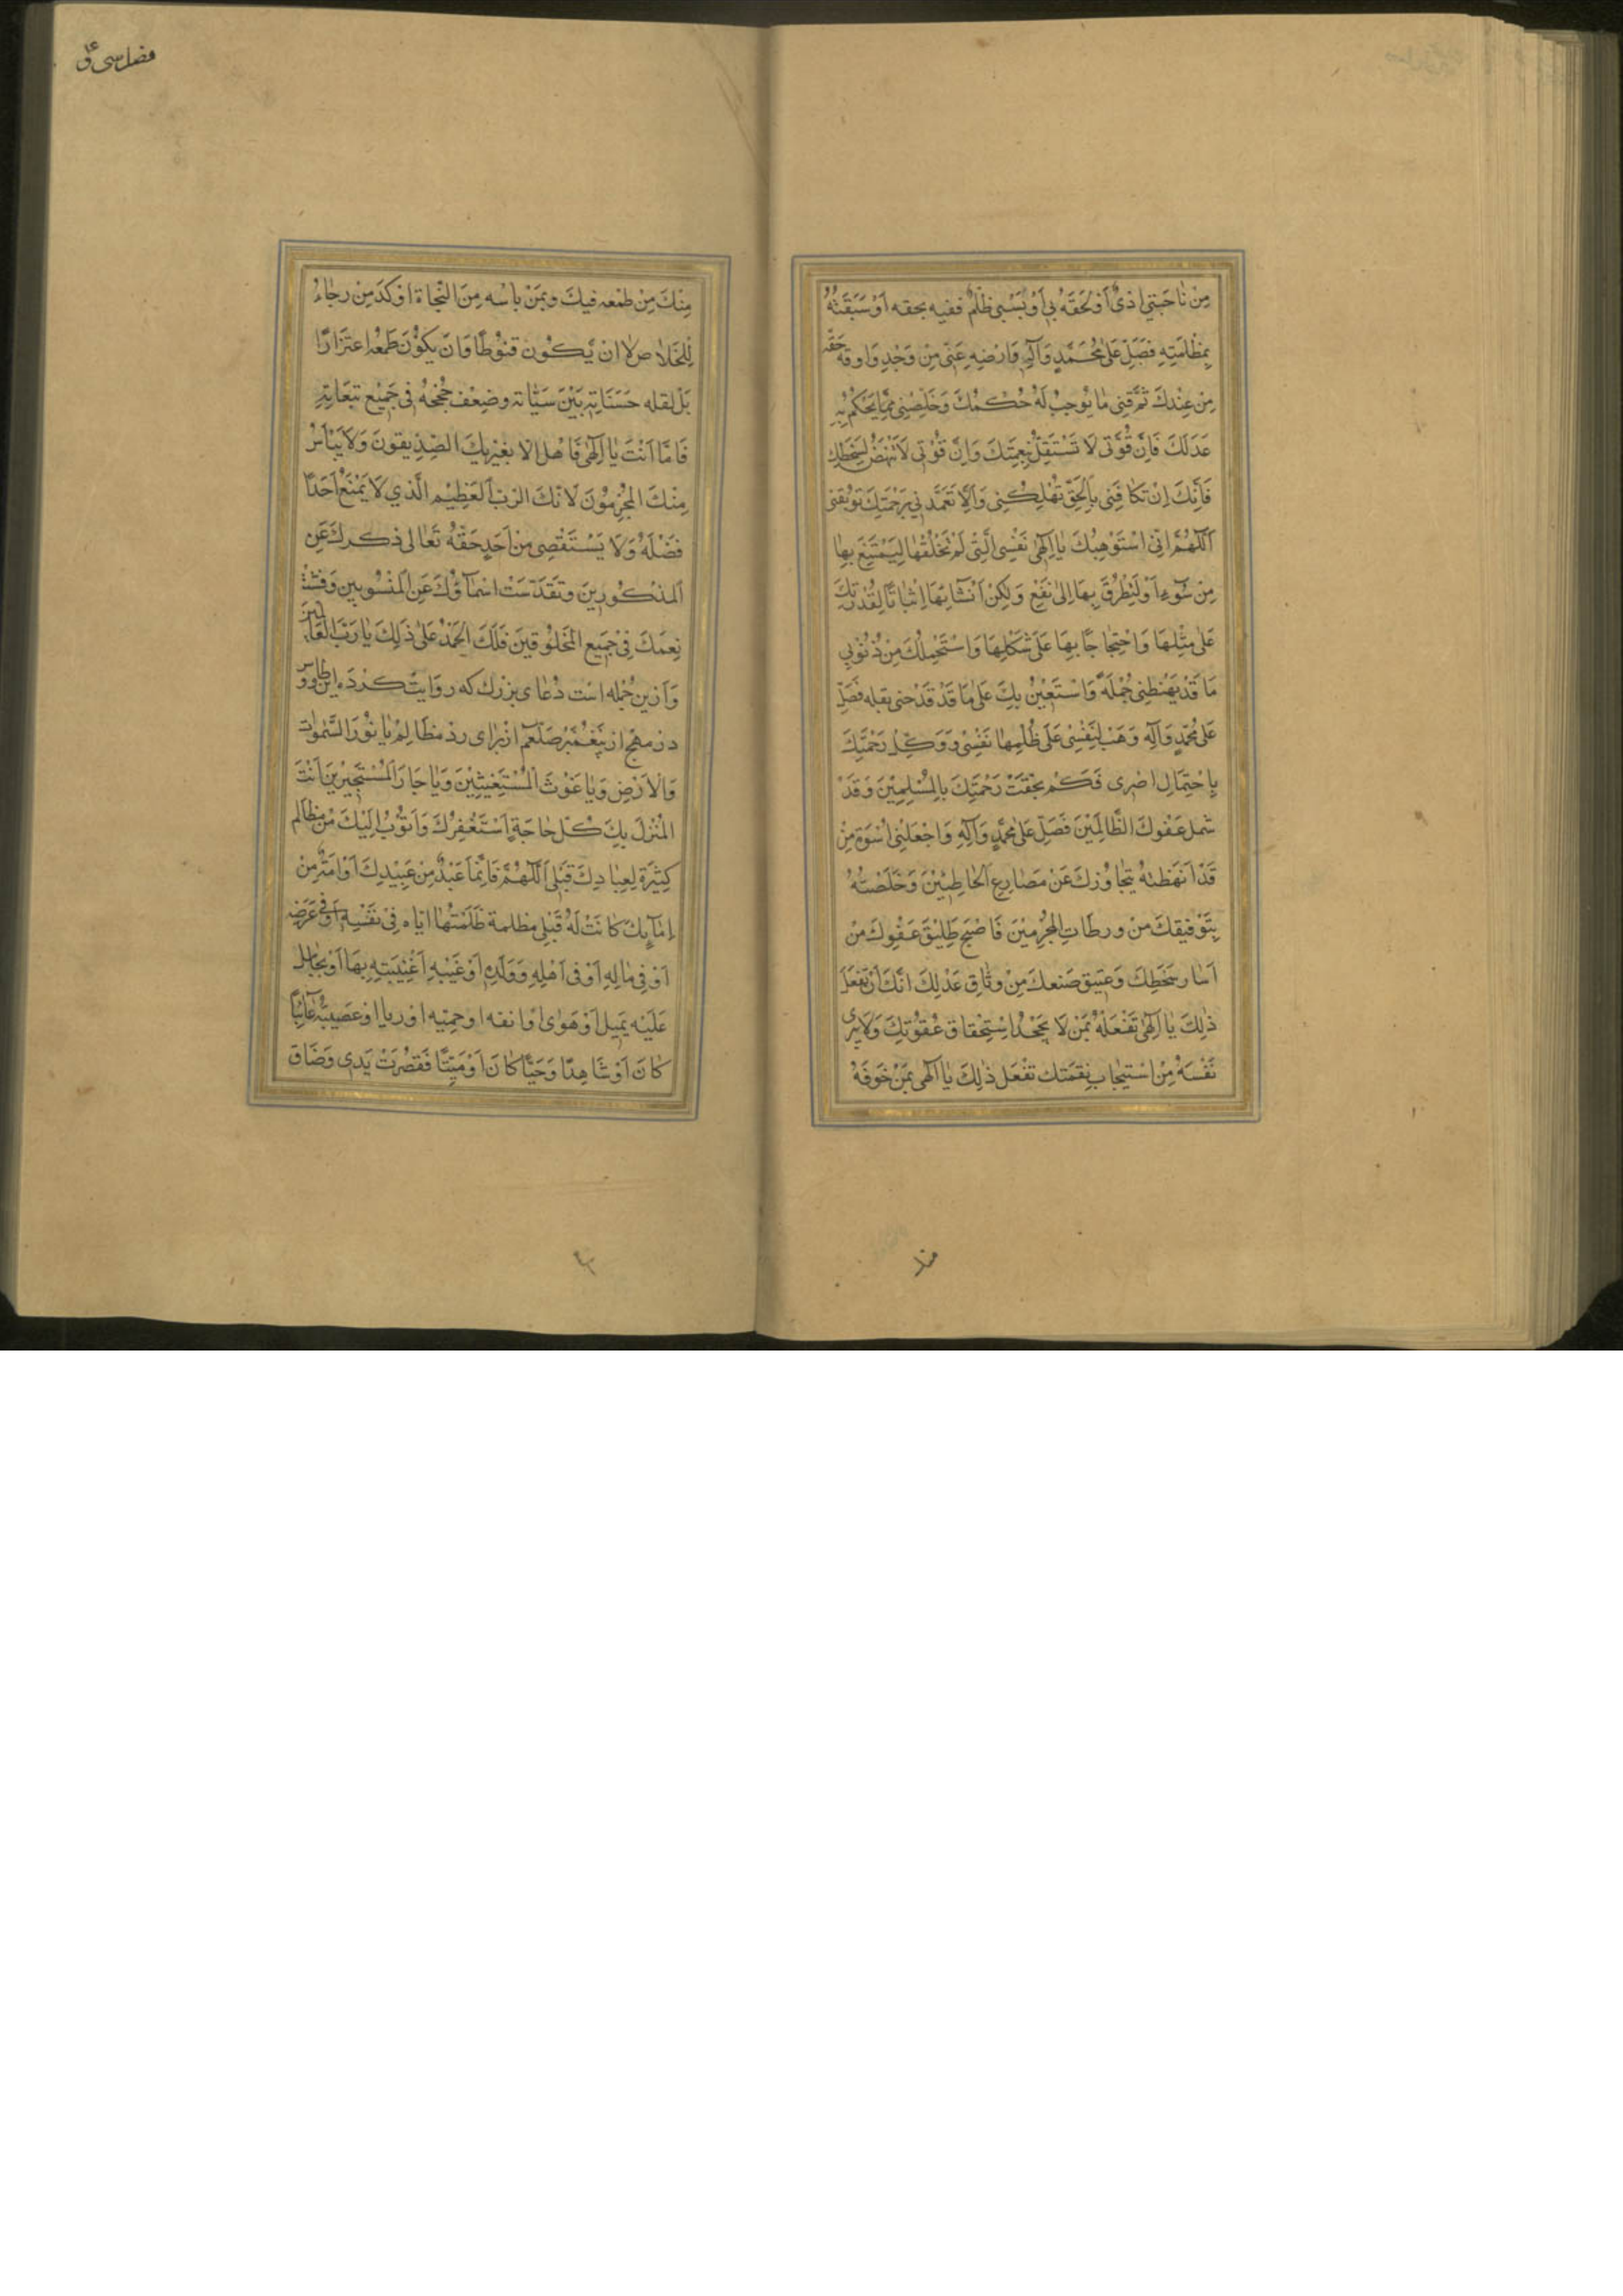 مِنْ نٰاحِيَتِي اَذىً اَوْ لَحِقَهُ بِي اَوْ بِسَبَبِي ظُلْمٌ ففيه بحقه اَوْ سَبَقْتُهُ
بِمَظْلَمَتِهِ فَصَلِّ عَلىٰ مُحَمَّدٍ وَآلِهِ وَارْضِهِ عَنّى مِنْ وَجْدِكَ وَاوفه حَقَّه
مِنْ عِنْدِكَ ثُمَّ قِنى مٰا يُوجِبُ لَهُ حُكْمُكَ وَخَلِّصْنِى مِمّٰا يَحْكُمُ بِهِ
عَدْلُكَ فَاِنَّ قُوَّتى لَا تَسْتَقِلُّ بِنِعْمَتِكَ وَاِنَّ قُوَّتى لَا تَنْهَضُ لِسَخَطِكَ
فَاِنَّكَ اِنْ تكافِنِى بِالْحَقِّ تُهْلِكْنِى وَاِلَّا تَغَمَّدْنِي بِرَحْمَتِكَ توبقنى
اَللّٰهُمَّ اِنّى اسْتَوْهِبُكَ يٰا اِلٰهىٰ نَفْسِى الَّتِى لَمْ تَخْلُقْهٰا لِتَمْتَنِعَ بِهٰا
مِنْ سُوءٍ اَوْ لِتَطْرُقَ بِهَا اِلىٰ نَفْعٍ وَلٰكِنْ اَنْشَأْتَهَا اِثْبَاتًا لِقُدْرَتِكَ
عَلىٰ مِثْلِهَا وَاحْتِجٰاجًا بِهٰا عَلىٰ شَكْلِهَا وَاسْتَحْمِلُكَ مِنْ ذُنُوْبِي
مَا قَدْ يَهَنظنِى حُمْلَهُ وَاسْتَعِيْنُ بِكَ عَلىٰ مَا قَدْ قَدْحنى بقله فَصَلِّ
عَلىٰ مُحَمَّدٍ وَآلِهِ وَهَبْ لِنَفْسِى عَلىٰ ظُلْمِهٰا نَفْسِى وَوَكِّل رَحْمَتَكَ
بِاحْتِمَالِ اصْرى فَكَمْ بحقتْ رَحْمَتِكَ بالْمُسْلِمِيْنَ وَقَدْ
شمل عَفْوكَ الظَّالِمِيْنَ فَصَلِّ عَلىٰ مُحَمَّدٍ وَآلِهِ وَاجْعَلْنِى اُسْوَةَ مِنْ
قَدْ اَنهَظتهُ بِتَجٰاوُزِكَ عَنْ مَصٰارِعِ اَلْخٰاطِئِيْنَ وَخَلَّصْتَهُ
بِتَوْفيقكَ مِنْ ورطٰاتِ الْمُجْرِمِيْنَ فَاَصْبَحَ طَلِيْقَ عَفْوِكَ مِنْ
اَسٰار سَخَطِكَ وَعَتِيق صَنعكَ مِنْ وثٰاقِ عَدْلِكَ اِنَّكَ اَنْ تَفْعَلَ
ذٰلِكَ يٰا اِلٰهىٰ تَفْعَلْهُ بِمَنْ لَا يَجْحَدُ اسْتِحْقٰاقَ عُقُوْبَتِكَ وَلَا يبرى
نَفْسَهُ مِنْ اسْتِيجٰاب نِقمَتِك تفْعَل ذٰلِكَ يٰا الٰهى بِمَنْ خَوفَهُ
فضل سی ق
مِنْكَ مِنْ طمْعه فيكَ وبمَنْ ياسُه مِنَ النَّجٰاة اَوْكَدَ مِنْ رجٰاءُ
لِلْخَلٰاصِ لا ان يَّكُون قنوُطًا وَانَ يَكُوْنَ طَمْعُه اعتِرَارًا
بَلْ لقله حَسَنَاتِهِ بَيْنَ سَيّئٰاته وضِعْف حُجَجهُ فى جَمِيْع تبعَاتِهِ
فَامَّا اَنْتَ يٰا اِلٰهى فَاهْل الا يغيْر بِكَ الصِّدِّيقونَ وَلَا يَيْاَسُ
مِنْكَ الْمُجْرِمُونَ لِانَّكَ الرَّبّ الْعَظِيْم الَّذي لَا يَمْنَعُ اَحَدًا
فَضْلَهُ وَلَا يَسْتَقْصِى مِنْ اَحَدٍ حَقَّهُ تَعٰالى ذكرك عَنِ
اَلمذكُورِينَ وتَقَدَّسَتْ اسْمٰاؤُكَ عَنِ الْمَنْسُوبين وَفَشَتْ
نِعمَكَ فِى جَمِيع الْمَخلُوقينَ فَلَكَ الْحَمْدُ عَلىٰ ذٰلِكَ يٰا رَبَّ الْعَالَمِينَ
وَازين جُمْله است دُعٰاى بزرك كه روايت كرْدَه ابن طاوس
در مهج از پيغمبر صلعم ازْ براى ردّ مظالِم يٰا نُوْرَ السَّمٰوٰات
وَالْاَرْضِ وَيٰا غَوْثَ الْمُسْتَغِيثِيْنَ وَيٰا جَارَ الْمُسْتَجِيرِينَ اَنْتَ
الْمُنْزَلُ بِكَ كُلّ حٰاجَةٍ اَسْتَغْفِرُكَ وَاَتُوْبُ اِلَيْكَ مِنْ مظالم
كثِيْرَةٍ لِعِبٰادِكَ قِبَلى اَللّٰهُمَّ فَايّمٰا عَبْدٌ مِنْ عَبِيْدِكَ اَوْ اَمَةٌ مِنْ
اِمٰآئِكَ كٰانَتْ لَهُ قِبَلِى مظلمة ظَلَمْتُهٰا ايّاه فِىْ نَفْسِهِ اَوْفى عَرَضِه
اَوْ فِى مٰالِهِ اَوْ فى اَهْلِهِ وَوَلَدِهِ اَوْ غَيْبَهِ اغْتَيَبتهِ بِهَا اَوْ تحٰامل
عَلَيْه بِمَيل اَوْ هَوٰى اَوْ انفه اوحمِيّه او ريا او عصَبِيّه غَآئِبًا
كَانَ اَوْ شَاهِدًا وَحَيًّا كٰانَ اَوْ مَيِّتًا فَقَصُرَتْ يَدى وَضَاقَ